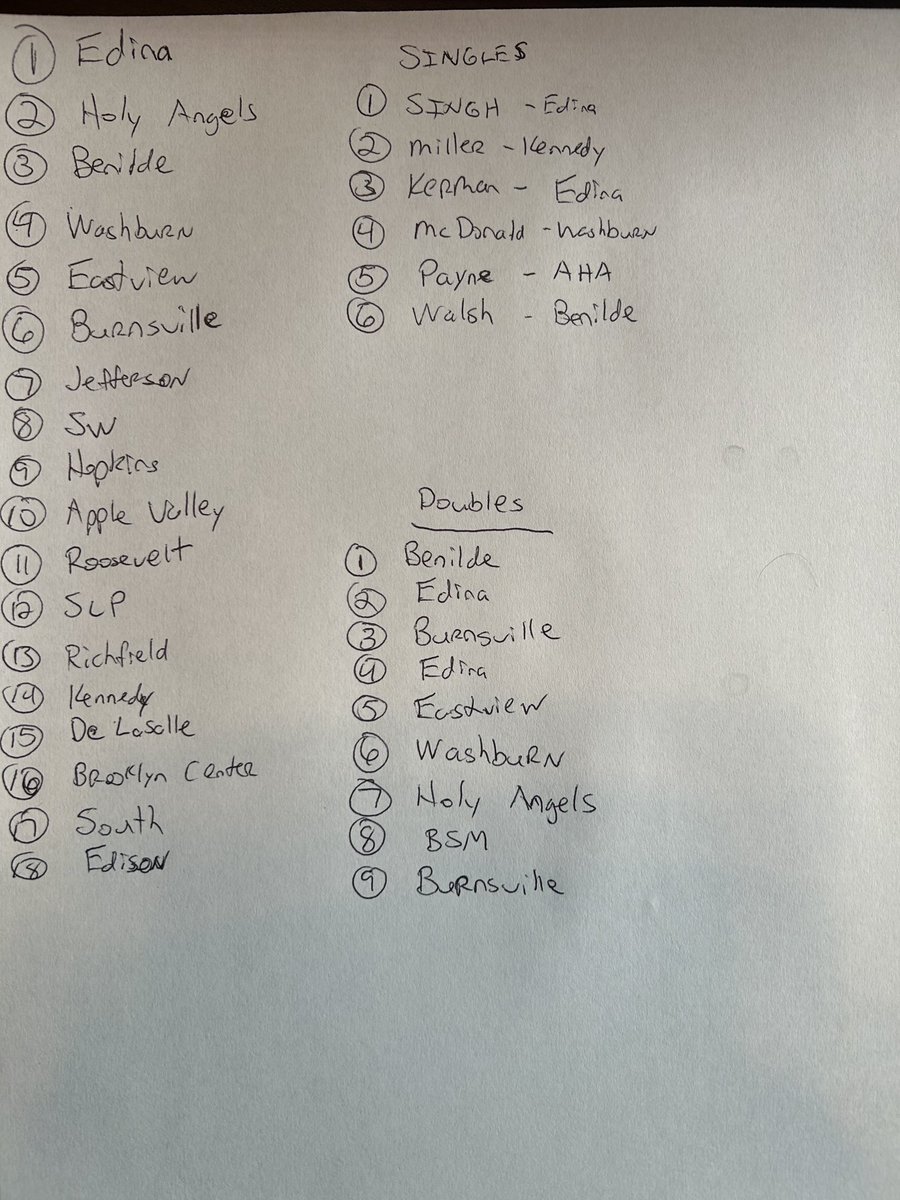 1 Edina
2 Holy Angels
3 Benilde
4 Washburn
5 Eastview
6 Burnsville
7 Jefferson
8 SW
9 Hopkins
10 Apple Valley
11 Roosevelt
12 SLP
13 Richfield
14 Kennedy
15 De Lasalle
16 Brooklyn Center
17 South
18 Edison
SINGLES
1 SINGH - Edina
2 Miller - Kennedy
3 Kerman - Edina
4 McDonald - Washburn
5 Payne - AHA
6 Walsh - Benilde
Doubles
1 Benilde
2 Edina
3 Burnsville
4 Edina
5 Eastview
6 Washburn
7 Holy Angels
8 BSM
9 Burnsville